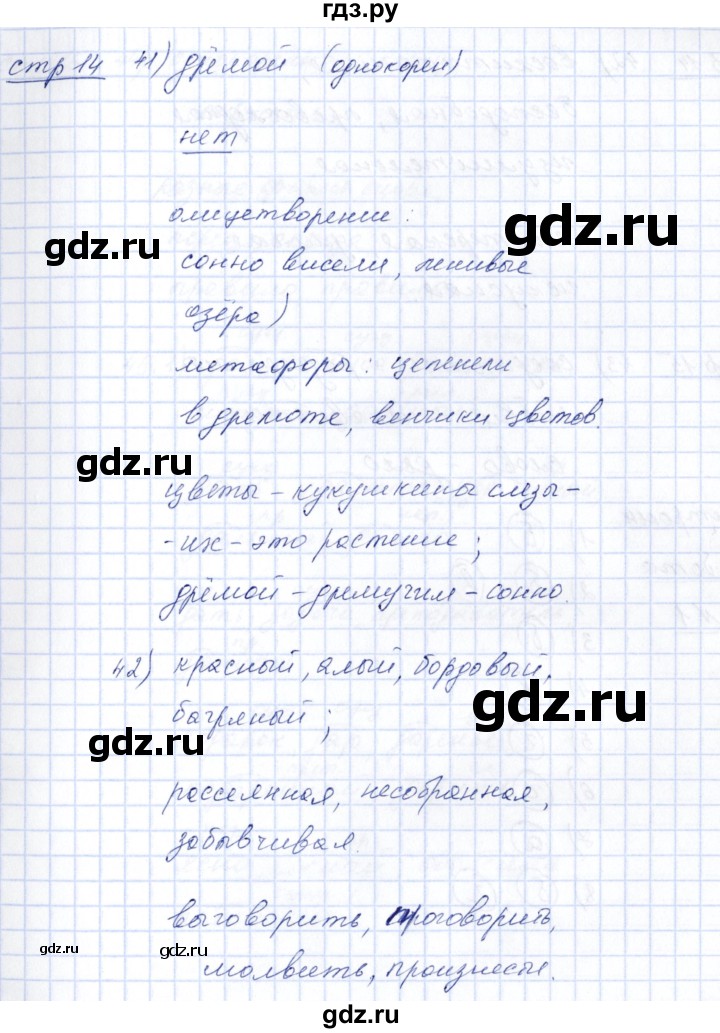 гдз.ру
стр 14 41) дрёмой (однокорен)
нет
олицетворение:
gdz.ru
gdz.ru
сонно висели, ленивые
озёра)
метафоры: цепенели
в дремоте, венчики цветов.
gdz.ru
цветы - кукушкины слезы -
- их - это растение;
дрёмой - дремучим - сонно.
42) красный, алый, бордовый,
gdz.ru
багряный;
gdz.ru
рассеянная, несобранная,
забывчивая.
выговорить, проговорить,
gdz.ru
gdz.ru
молвить, произнести.
gdz.ru